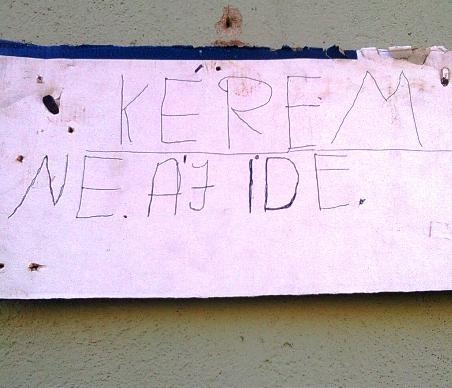 KÉREM
NE. ÁJ IDE.